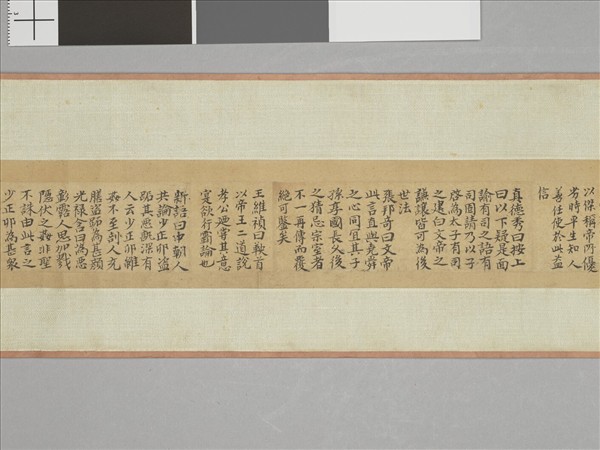 以謀稱帝所優
劣時平生知人
善任使於此益
信
真德秀曰按上
曰以下疑是面
諭有司之語有
司固請乃以子
啓為太子有司
之建白文帝之
謙讓皆可為後
世法
張邦奇曰文帝
此言直與堯舜
之心同宜其子
孫享國長久後
之猜忌宗室者
不一再傳而覆
絕可鑒矣
王維楨曰鞅首
以帝王二道說
孝公迺嘗其意
寔欲行霸論也
新語曰申朝人
共論少正卯盜
跖其惡孰深有
人云少正卯雖
姦不至剖人充
膳盜跖為甚顏
光祿含曰為惡
彰露人思加戮
隱伏之姦非聖
不誅由此言之
少正卯為甚衆